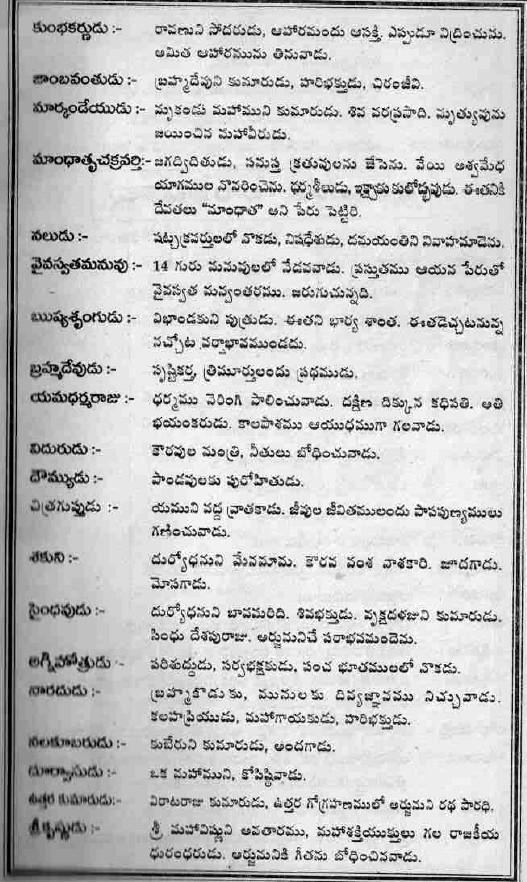 కుంభకర్ణుడు :- రావణుని సోదరుడు, ఆహారమందు ఆసక్తి. ఎప్పుడూ నిద్రించును.
అమిత ఆహారమును తినువాడు.
జాంబవంతుడు :- బ్రహ్మదేవుని కుమారుడు, హరిభక్తుడు, చిరంజీవి.
మార్కండేయుడు :- మృకండు మహాముని కుమారుడు. శివ వరప్రసాది. మృత్యువును
జయించిన మహావీరుడు.
మాంధాతృచక్రవర్తి:- జగద్విదితుడు, సమస్త క్రతువులను జేసెను. వేయి అశ్వమేధ
యాగముల నొనరించెను. ధర్మశీలుడు, ఇక్ష్వాకు కులోద్భవుడు. ఈతనికి
దేవతలు "మాంధాత" అని పేరు పెట్టిరి.
నలుడు :- షట్చక్రవర్తులలో నొకడు, నిషధేశుడు, దమయంతిని వివాహమాడెను.
వైవస్వతమనువు :- 14 గురు మనువులలో నేడవవాడు. ప్రస్తుతము ఆయన పేరుతో
వైవస్వత మన్వంతరము. జరుగుచున్నది.
ఋష్యశృంగుడు :- విభాండకుని పుత్రుడు. ఈతని భార్య శాంత. ఈతడెచ్చటనున్న
నచ్చోట వర్షాభావముండదు.
బ్రహ్మదేవుడు :- సృష్టికర్త, త్రిమూర్తులందు ప్రథముడు.
యమధర్మరాజు :- ధర్మము నెరింగి పాలించువాడు. దక్షిణ దిక్కున కధిపతి. అతి
భయంకరుడు. కాలపాశము ఆయుధముగా గలవాడు.
విదురుడు :- కౌరవుల మంత్రి, నీతులు బోధించువాడు.
దౌమ్యుడు :- పాండవులకు పురోహితుడు.
చిత్రగుప్తుడు :- యముని వద్ద వ్రాతకాడు. జీవుల జీవితములందు పాపపుణ్యములు
గణించువాడు.
శకుని :- దుర్యోధనుని మేనమామ. కౌరవ వంశ నాశకారి. జూదగాడు.
మోసగాడు.
సైంధవుడు :- దుర్యోధనుని బావమరిది. శివభక్తుడు. వృక్షదళజుని కుమారుడు.
సింధు దేశపురాజు. అర్జునునిచే పరాభవమందెను.
అగ్నిహోత్రుడు :- పరిశుద్ధుడు, సర్వభక్షకుడు, పంచ భూతములలో నొకడు.
నారదుడు :- బ్రహ్మకొడుకు, మునులకు దివ్యజ్ఞానము నిచ్చువాడు.
కలహప్రియుడు, మహాగాయకుడు, హరిభక్తుడు.
నలకూబరుడు :- కుబేరుని కుమారుడు, అందగాడు.
దూర్వాసుడు :- ఒక మహాముని, కోపిష్ఠివాడు.
ఉత్తర కుమారుడు:- విరాటరాజు కుమారుడు, ఉత్తర గోగ్రహణములో అర్జునుని రథ సారధి.
శ్రీకృష్ణుడు :- శ్రీ మహావిష్ణుని అవతారము, మహాశక్తియుక్తులు గల రాజకీయ
ధురంధరుడు. అర్జునునికి గీతను బోధించినవాడు.